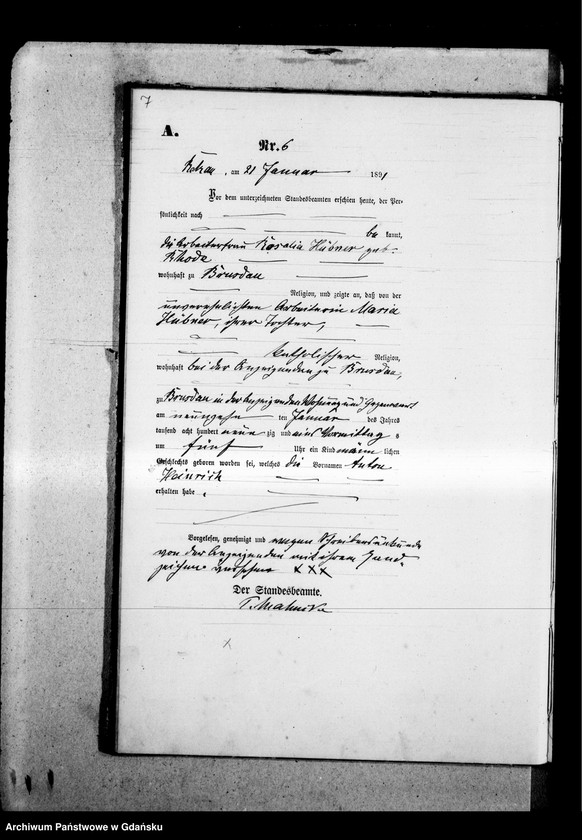 7
A.
Nr. 6
am 21 Januar 1891
Vor dem unterzeichneten Standesbeamten erschien heute, der Per-
sönlichkeit nach
be kannt,
die Arbeiterfrau Rosalia Hübner geb.
Rhode
wohnhaft zu Brusdau
Religion, und zeigte an, daß von der
unverehelichten Arbeiterin Maria
Hübner, ihrer Tochter,
katholischer Religion,
wohnhaft bei der Anzeigenden zu Brusdau,
zu Brusdau in der Anzeigenden Wohnung und Gegenwart
am neunzehn ten Januar des Jahres
tausend acht hundert neun zig und eins Vormittag s
um fünf Uhr ein Kind männ lichen
Geschlechts geboren worden sei, welches die Vornamen Anton
Heinrich
erhalten habe.
Vorgelesen, genehmigt und wegen Schreibensunkunde
von der Anzeigenden mit ihrem Hand-
zeichen versehen XXX
Der Standesbeamte.
x
Archiwum Państwowe w Gdańsku